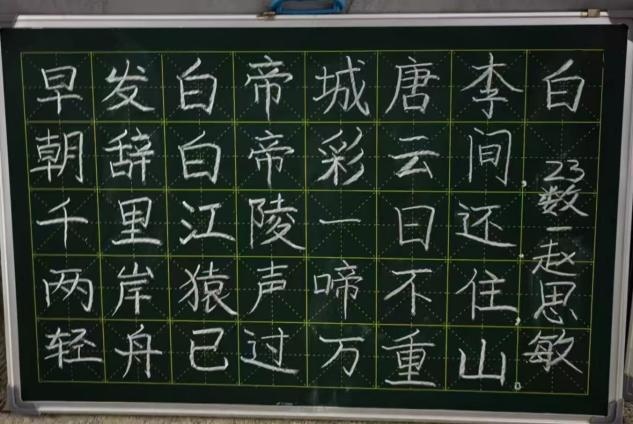 早发白帝城唐李白
朝辞白帝彩云间,
千里江陵一日还.
两岸猿声啼不住,
轻舟已过万重山。
23数一赵思敏